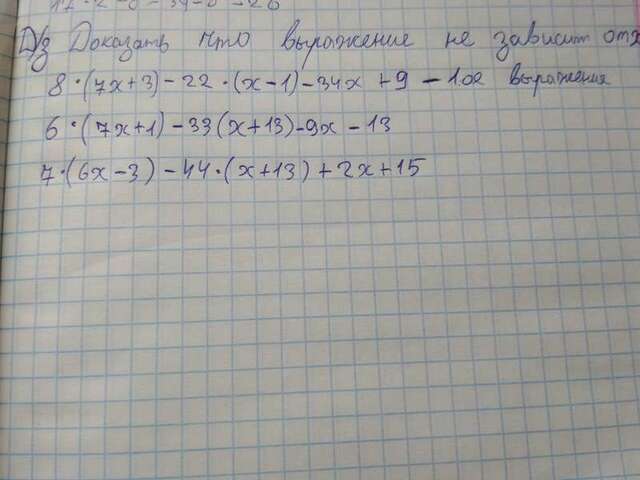 Д/з Доказать что выражение не зависит от х
8·(7x+3)-22·(x-1)-34x+9 - 1.ое выражения
6·(7x+1)-33(x+13)-9x-13
7·(6x-3)-44·(x+13)+2x+15